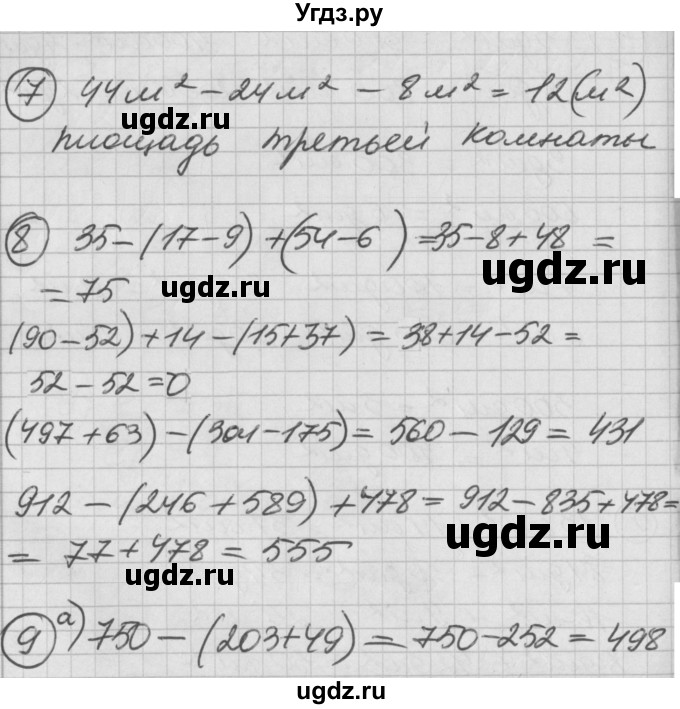 Угдз.ру
7 44м² - 24м² - 8м² = 12(м²)
ugdz.ru
площадь третьей комнаты
8 35 - (17 - 9) + (54 - 6) = 35 - 8 + 48 =
ugdz.ru
= 75 ugdz.ru
(90 - 52) + 14 - (15 + 37) = 38 + 14 - 52 =
52 - 52 = 0
(497 + 63) - (304 - 175) = 560 - 129 = 431
912 - (246 + 589) + 478 = 912 - 835 + 478 =
ugdz.ru
= 77 + 478 = 555
ugdz.ru
9 а) 750 - (203 + 49) = 750 - 252 = 498
ugdz.ru